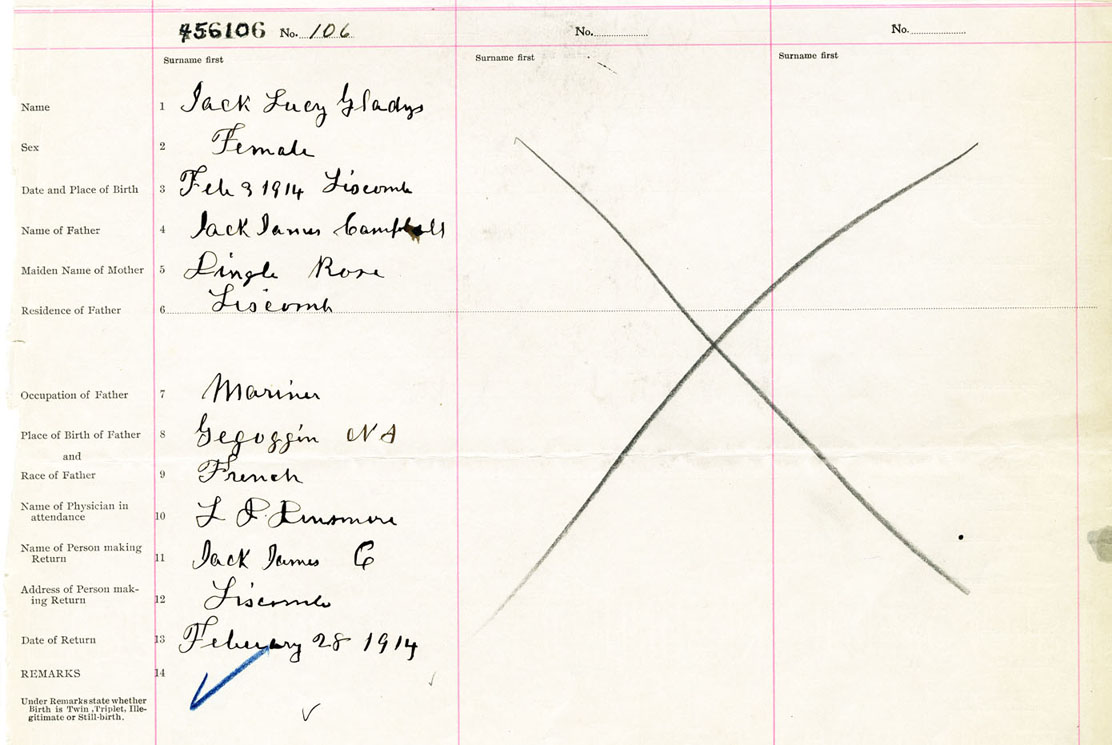 456106 No. 106 No. No.
Surname first Surname first Surname first
Name 1 Jack Lucy Gladys
Sex 2 Female
Date and Place of Birth 3 Feb 3 1914 Liscomb
Name of Father 4 Jack James Campbell
Maiden Name of Mother 5 Lingle Rose
Residence of Father 6 Liscomb
Occupation of Father 7 Mariner
Place of Birth of Father 8 Gegoggin
and
Race of Father 9 French
Name of Physician in
attendance 10 L P
Name of Person making
Return 11 Jack James C
Address of Person mak-
ing Return 12 Liscomb
Date of Return 13 February 28 1914
REMARKS 14
Under Remarks state whether
Birth is Twin, Triplet, Ille-
gitimate or Still-birth.